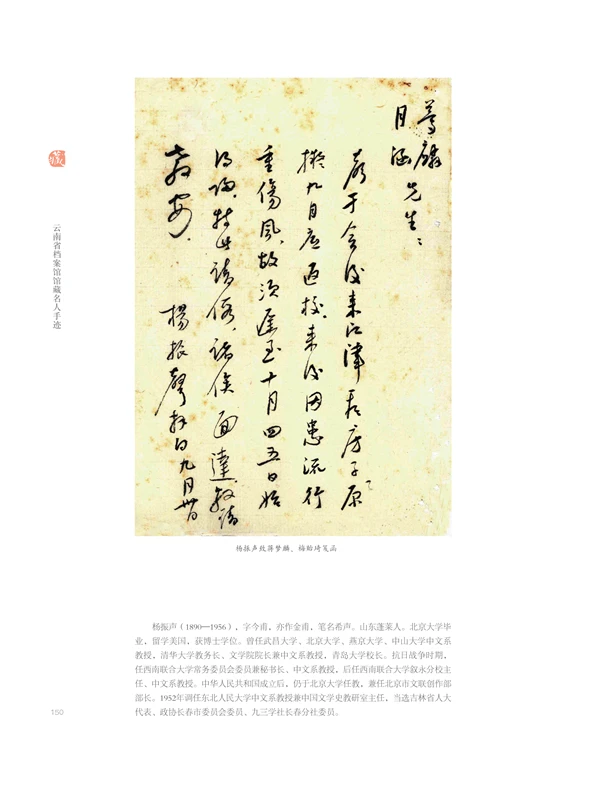 夢麟
月涵先生：
弟于會後来江津看房子，原
擬九月底返校，来後因患流行
重傷風，故須遲至十月四五日始
得歸，特此請假，諸俟面達，敬請
教安。
楊振聲拜白九月卅日
云南省档案馆馆藏名人手迹
杨振声致蒋梦麟、梅贻琦笺函
杨振声（1890—1956），字今甫，亦作金甫，笔名希声。山东蓬莱人。北京大学毕
业，留学美国，获博士学位。曾任武昌大学、北京大学、燕京大学、中山大学中文系
教授，清华大学教务长、文学院院长兼中文系教授，青岛大学校长。抗日战争时期，
任西南联合大学常务委员会委员兼秘书长、中文系教授，后任西南联合大学叙永分校主
任、中文系教授。中华人民共和国成立后，仍于北京大学任教，兼任北京市文联创作部
部长。1952年调任东北人民大学中文系教授兼中国文学史教研室主任，当选吉林省人大
代表、政协长春市委员会委员、九三学社长春分社委员。
150